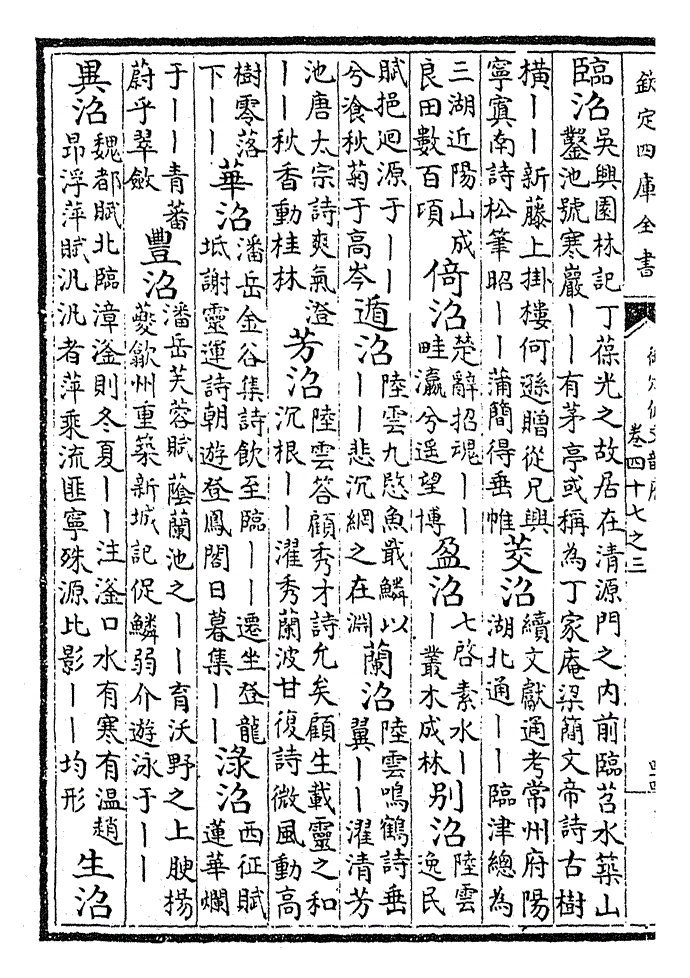 欽定四庫全書
御定佩文韻府
卷四十七之三
臨沼
吳興園林記丁葆光之故居在清源門之内前臨苕水築山
鑿池號寒巖——有茅亭或稱為丁家庵梁簡文帝詩古樹
橫——新藤上掛樓何遜贈從兄與
寧寘南詩松筆昭——蒲簡得垂帷
茭沼
續文獻通考常州府陽
湖北通——臨津總為
三湖近陽山成
良田數百頃
倚沼
楚辭招魂——
畦瀛兮遥望博
盈沼
七啓素水—
—叢木成林
别沼
陸雲
逸民
賦挹迴源于——
兮飡秋菊于高岑
遁沼
陸雲九愍魚戢鱗以
——悲沉網之在淵
蘭沼
陸雲鳴鶴詩垂
翼——濯清芳
池唐太宗詩爽氣澄
——秋香動桂林
芳沼
陸雲答顧秀才詩允矣顧生載靈之和
沉根——濯秀蘭波甘復詩微風動高
樹零落
下——
華沼
潘岳金谷集詩飲至臨——遷坐登龍
坻謝靈運詩朝遊登鳳閣日暮集——
淥沼
西征賦
蓮華爛
于——青蕃
蔚乎翠斂
豐沼
潘岳芙蓉賦蔭蘭池之——育沃野之上腴揚
夔歙州重築新城記促鱗弱介遊泳于——
異沼
魏都賦北臨漳滏則冬夏——注滏口水有寒有温趙
昂浮萍賦汎汎者萍乘流匪寧殊源比影——均形
生沼